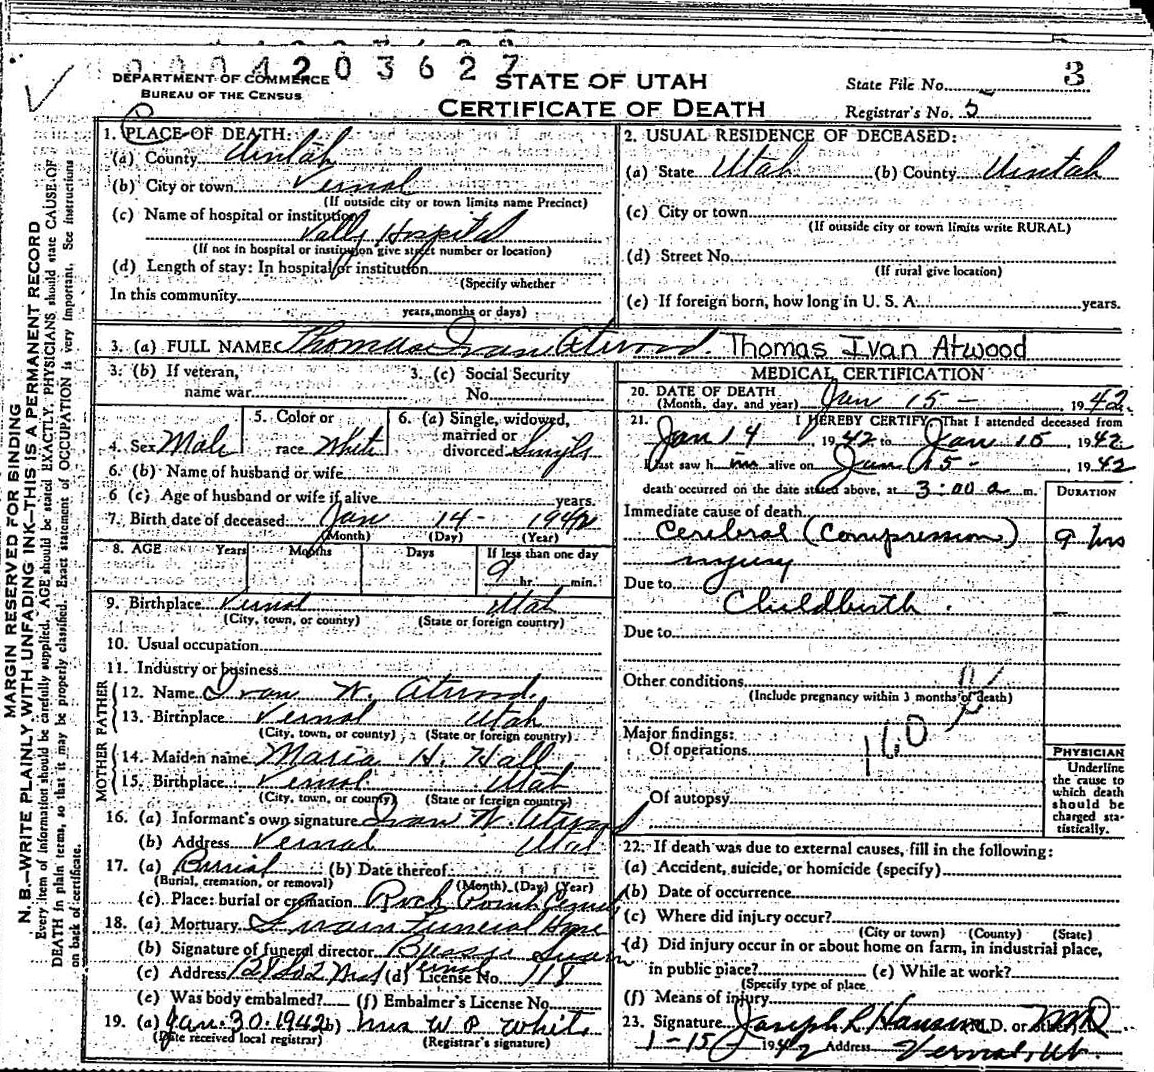 0004203627
DEPARTMENT OF COMMERCE
BUREAU OF THE CENSUS
STATE OF UTAH
CERTIFICATE OF DEATH
State File No. 3
Registrar's No. 5
MARGIN RESERVED FOR BINDING
N. B.—WRITE PLAINLY, WITH UNFADING INK—THIS IS A PERMANENT RECORD
Every item of information should be carefully supplied. AGE should be stated EXACTLY, PHYSICIANS should state CAUSE OF
DEATH in plain terms, so that it may be properly classified. Exact statement of OCCUPATION is very important. See instructions
on back of certificate.
1. PLACE OF DEATH:
(a) County Uintah
(b) City or town Vernal
(If outside city or town limits name Precinct)
(c) Name of hospital or institution
Vally Hospital
(If not in hospital or institution give street number or location)
(d) Length of stay: In hospital or institution
(Specify whether
In this community
years, months or days)
2. USUAL RESIDENCE OF DECEASED:
(a) State Utah (b) County Uintah
(c) City or town
(If outside city or town limits write RURAL)
(d) Street No.
(If rural give location)
(e) If foreign born, how long in U. S. A. years.
3. (a) FULL NAME Thomas Ivan Atwood. Thomas Ivan Atwood
3. (b) If veteran,
name war
3. (c) Social Security
No.
4. Sex Male
5. Color or
race White
6. (a) Single, widowed,
married or
divorced Single
6. (b) Name of husband or wife
6 (c) Age of husband or wife if alive years.
7. Birth date of deceased Jan 14- 1942
(Month) (Day) (Year)
8. AGE Years Months Days If less than one day
9 hr. min.
9. Birthplace Vernal Utah
(City, town, or county) (State or foreign country)
10. Usual occupation
11. Industry or business
FATHER
12. Name Ivan W. Atwood.
13. Birthplace Vernal Utah
(City, town, or county) (State or foreign country)
MOTHER
14. Maiden name Maria H. Hall
15. Birthplace Vernal Utah
(City, town, or county) (State or foreign country)
16. (a) Informant's own signature Ivan W. Atwood
(b) Address Vernal Utah
17. (a) Burial (b) Date thereof
(Burial, cremation, or removal) (Month) (Day) (Year)
(c) Place: burial or cremation Rock Point
18. (a) Mortuary Swain Funeral Home
(b) Signature of funeral director Swain
(c) Address Vernal (d) License No. 118
(e) Was body embalmed? (f) Embalmer's License No.
19. (a) Jan. 30. 1942 (b) Mrs W. P. White
(Date received local registrar) (Registrar's signature)
MEDICAL CERTIFICATION
20. DATE OF DEATH
(Month, day, and year) Jan 15- 1942.
21. I HEREBY CERTIFY, That I attended deceased from
Jan 14, 1942 to Jan 15, 1942
I last saw him alive on Jan 15-, 1942
death occurred on the date stated above, at 3:00 a m.
DURATION
Immediate cause of death
Cerebral (Compression) 9 hrs
injury
Due to
Childbirth.
Due to
Other conditions
(Include pregnancy within 3 months of death)
160
Major findings:
Of operations
Of autopsy
PHYSICIAN
Underline
the cause to
which death
should be
charged sta-
tistically.
22. If death was due to external causes, fill in the following:
(a) Accident, suicide, or homicide (specify)
(b) Date of occurrence
(c) Where did injury occur?
(City or town) (County) (State)
(d) Did injury occur in or about home on farm, in industrial place,
in public place? (e) While at work?
(Specify type of place
(f) Means of injury
23. Signature Joseph L. Hansen M.D. or other MD
1-15 1942 Address Vernal, Ut.